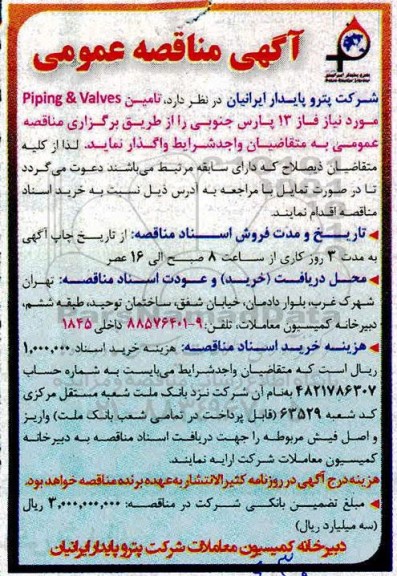 آگهی مناقصه عمومی
شرکت پترو پایدار ایرانیان در نظر دارد، تامین Piping & Valves
مورد نیاز فاز ۱۳ پارس جنوبی را از طریق برگزاری مناقصه
عمومی به متقاضیان واجدشرایط واگذار نماید. لذا از کلیه
متقاضیان ذیصلاح که دارای سابقه مرتبط می‌باشند دعوت می‌گردد
تا در صورت تمایل با مراجعه به آدرس ذیل نسبت به خرید اسناد
مناقصه اقدام نمایند.
تاریخ و مدت فروش اسناد مناقصه: از تاریخ چاپ آگهی
به مدت ۳ روز کاری از ساعت ۸ صبح الی ۱۶ عصر
محل دریافت (خرید) و عودت اسناد مناقصه: تهران
شهرک غرب، بلوار دادمان، خیابان شفق، ساختمان توحید، طبقه ششم،
دبیرخانه کمیسیون معاملات، تلفن: ۹-۸۸۵۷۶۴۰۱ داخلی ۱۸۴۵
هزینه خرید اسناد مناقصه: هزینه خرید اسناد ۱,۰۰۰,۰۰۰
ریال است که متقاضیان واجدشرایط می‌بایست به شماره حساب
۴۸۲۱۷۸۶۳۰۷ به‌نام آن شرکت نزد بانک ملت شعبه مستقل مرکزی
کد شعبه ۶۳۵۲۹ (قابل پرداخت در تمامی شعب بانک ملت) واریز
و اصل فیش مربوطه را جهت دریافت اسناد مناقصه به دبیرخانه
کمیسیون معاملات شرکت ارایه نمایند.
هزینه درج آگهی در روزنامه کثیرالانتشار به عهده برنده مناقصه خواهد بود.
مبلغ تضمین بانکی شرکت در مناقصه: ۳,۰۰۰,۰۰۰,۰۰۰ ریال
(سه میلیارد ریال)
دبیرخانه کمیسیون معاملات شرکت پترو پایدار ایرانیان